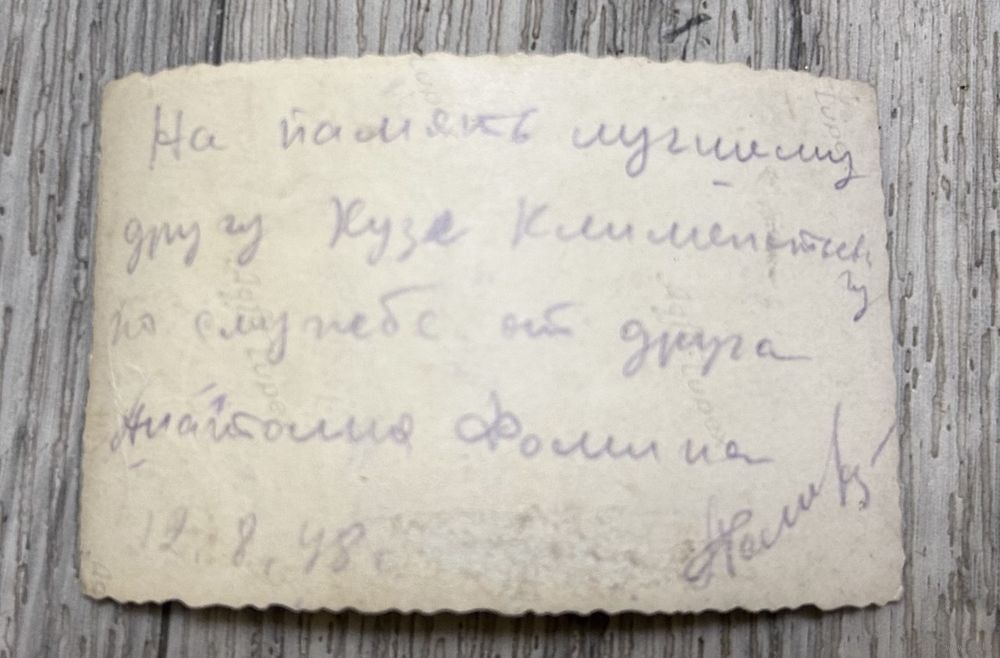 На память лучшему
другу Кузе Клименть
по службе от друга
Анатолия Фомина
12.8.48.